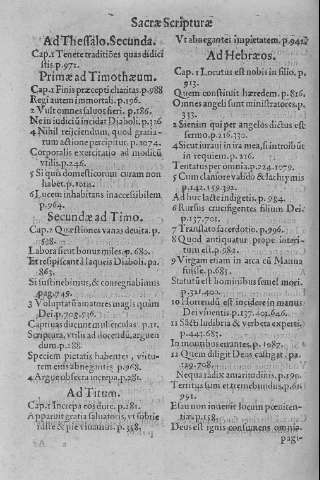 Sacræ Scripturæ
Ad Thessalo. Secunda.
Cap.2 Tenete traditiões quas didici
stis. p.972.
Primæ ad Timothæum.
Cap.1 Finis præcepti charitas. p.988
Regi autem immortali. p.196.
2 Vult omnes saluos fieri. p.186.
Ne in iudiciũ incidat Diaboli. p.126
4 Nihil reijciendum, quod gratia-
rum actione percipitur. p.1074.
Corporalis exercitatio ad modicũ
vtilis. p.246.
5 Si quis domesticorum curam non
habet. p.1012.
6 Lucem inhabitans inaccessibilem
p.964.
Secundæ ad Timo.
Cap.2 Quæstiones vanas deuita. p.
528.
Labora sicut bonus miles. p.680.
Et resipiscant à laqueis Diaboli. pa.
863.
Si sustinebimus, & conregnabimus
pag.745.
3 Voluptatũ amatores magis quàm
Dei. p.708. 716.
Captiuas ducunt mulierculas. p.11.
Scriptura, vtilis ad docendũ, arguen
dum. p.188.
Speciem pietatis habentes, virtu-
tem eius abnegantes p.968.
4 Argue obsecra increpa. p.281.
Ad Titum.
Cap.1 Increpa eos dure. p.281.
2 Apparuit gratia saluatoris, vt sobrie
iuste & pie viuamus. p.358.
Vt abnegantes impietatem. p.941.
Ad Hebræos.
Cap.1 Locutus est nobis in filio. p.
913.
Quem constituit hæredem. p.816.
Omnes angeli sunt ministratores. p.
333.
2 Si enim qui per angelos dictus est
sermo. p.216.330.
4 Sicut iuraui in ira mea, si introibũt
in requiem. p.216.
Tentatus per omnia. p.224.1079.
5 Cum clamore valido & lachrymis
p.142.159.392.
Ad huc lacte indigetis. p.984.
6 Rursus crucifigentes filium Dei.
p.137.701.
7 Translato sacerdotio. p.996.
8 Quod antiquatur prope interi-
tum est. p.982.
9 Virgam etiam in arca cũ Manna
fuisse. p.683.
Statutũ est hominibus semel mori.
p.321.400.
10 Horrendũ est incidere in manus
Dei viuentis. p.137. 401. 646.
11 Sãcti ludibria & verbera experti.
p.443.683.
In montibus errantes. p.1087.
12 Quem diligit Deus castigat. pa.
Ne qua radix amaritudinis. p.199.
Territus sum et tremebundus. p.61
991.
Esau non inuenit locum pœniten-
tiæ. p.158.
Deus est ignis consumens omnia.
pagi-